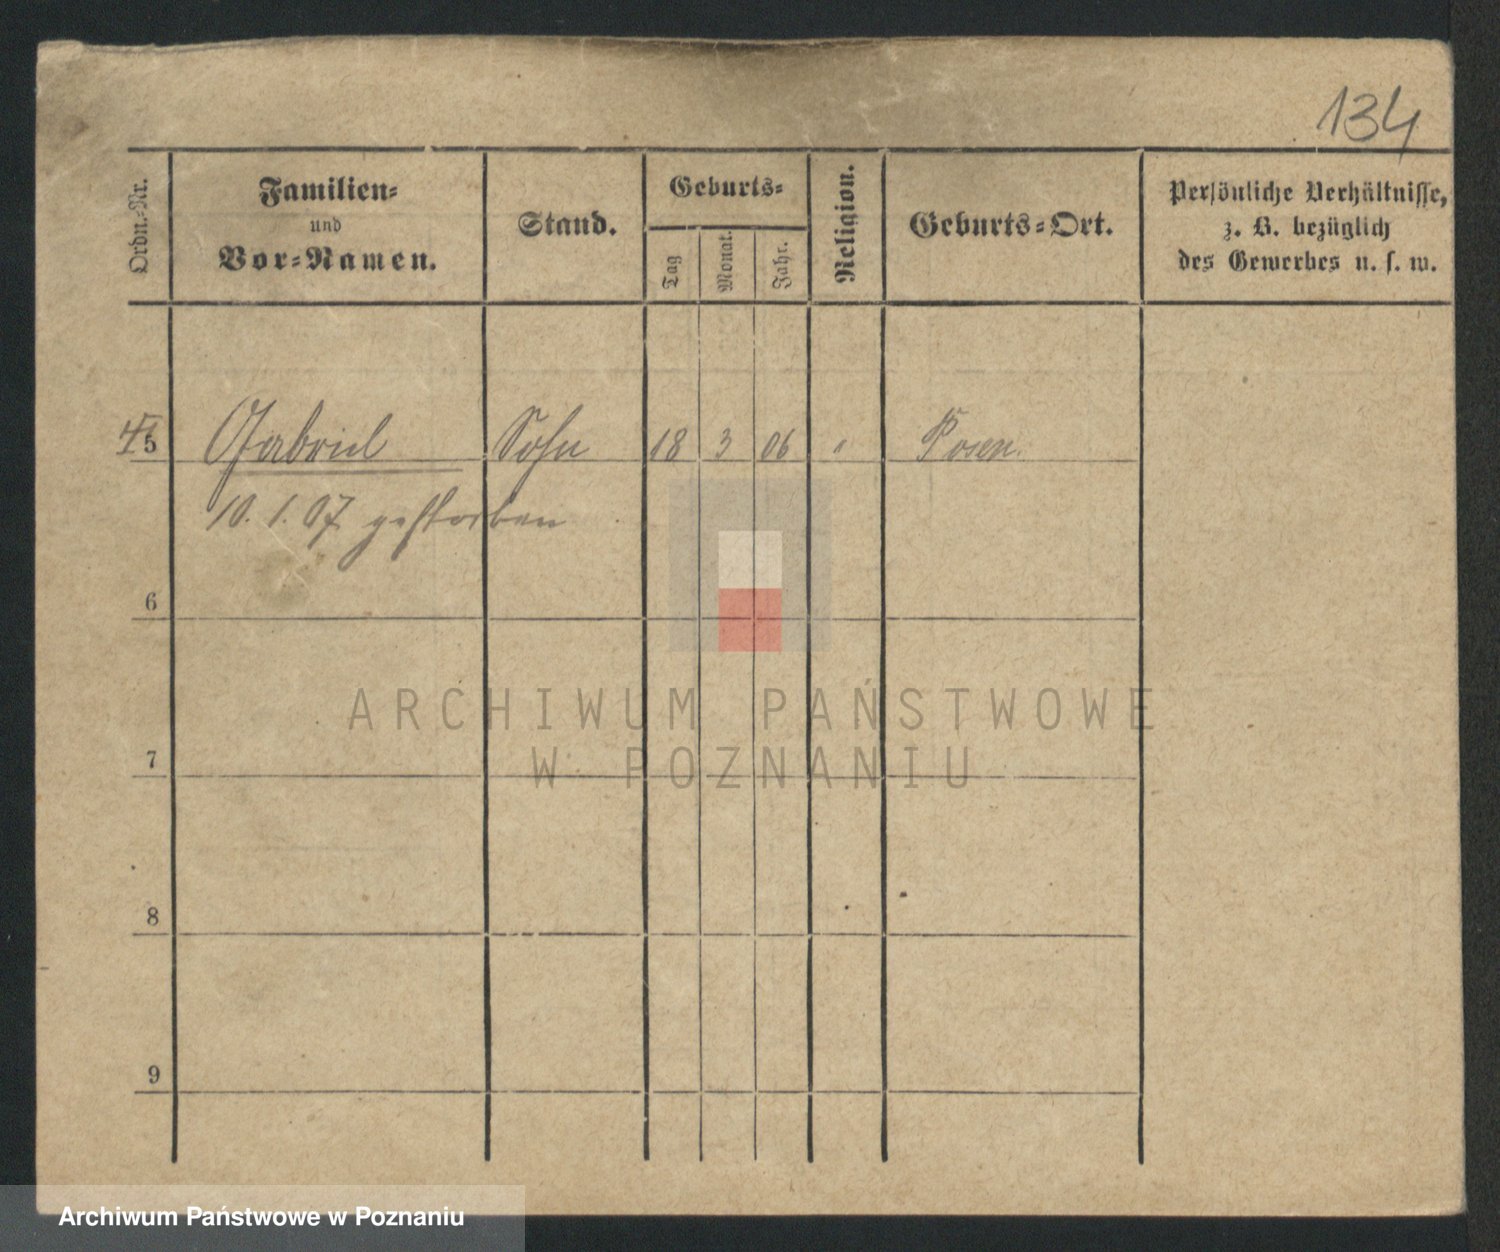 134
Ordn.-Nr.
Familien-
und
Vor-Namen.
Stand.
Geburts-
Tag
Monat.
Jahr.
Religion.
Geburts-Ort.
Persönliche Verhältnisse,
z. B. bezüglich
des Gewerbes u. s. w.
5 Gabriel Sohn 18 3 06 " Posen.
10. 1. 07 gestorben
6
7
8
9
ARCHIWUM PAŃSTWOWE
W POZNANIU
Archiwum Państwowe w Poznaniu